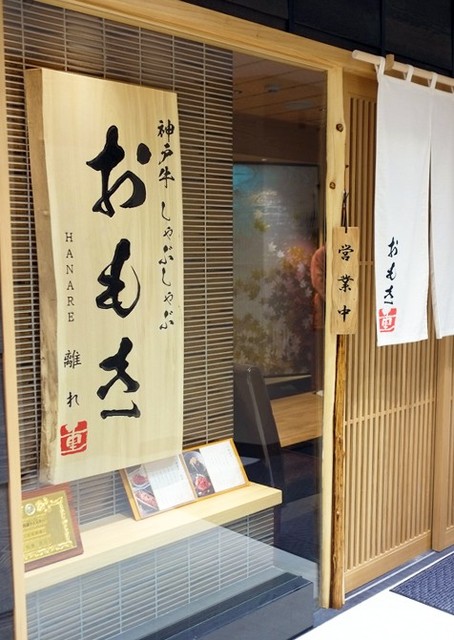 神戸牛 しゃぶしゃぶ
おもき
HANARE 離れ
重
営業中
おもき
重